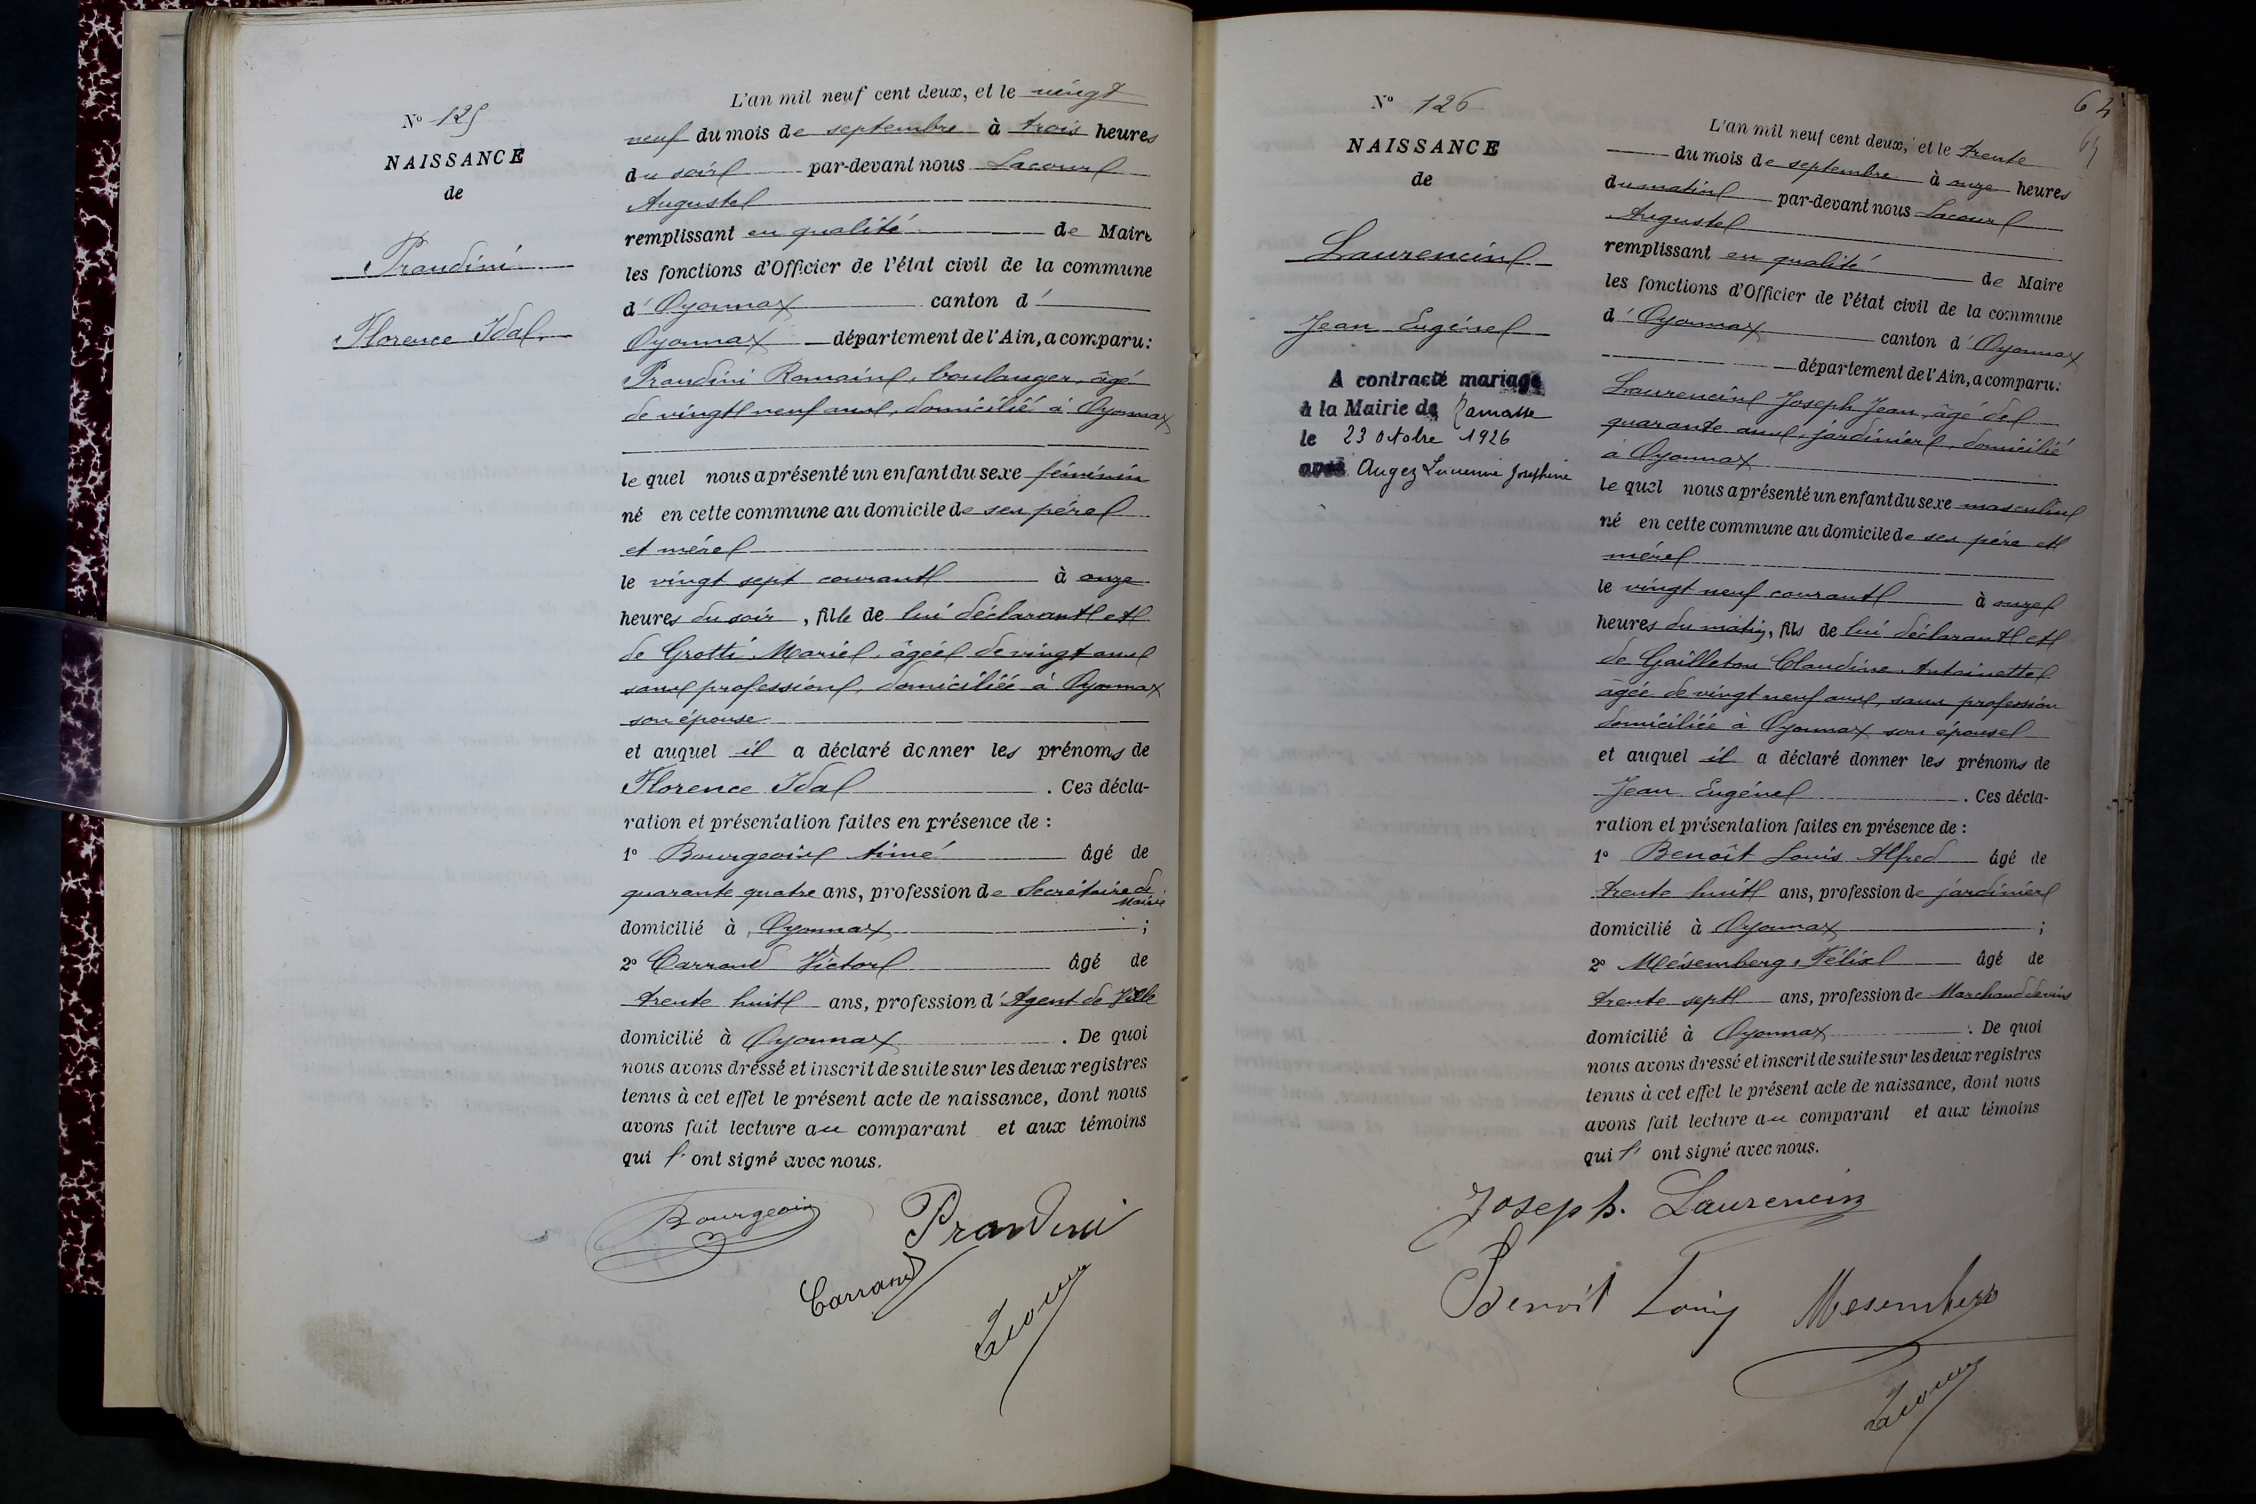 N° 125
NAISSANCE
de
Prandini
Florence Ida
L'an mil neuf cent deux, et le vingt
neuf du mois de septembre à trois heures
du soir par-devant nous Lacour
Auguste
remplissant en qualité de Maire
les fonctions d'Officier de l'état civil de la commune
d'Oyonnax canton d'
Oyonnax département de l'Ain, a comparu :
Prandini Romain, boulanger, âgé
de vingt neuf ans, domicilié à Oyonnax
le quel nous a présenté un enfant du sexe féminin
né en cette commune au domicile de ses père
et mère
le vingt sept courant à onze
heures du soir, fille de lui déclarant et
de Grotti Marie, âgée de vingt ans
sans profession, domiciliée à Oyonnax
son épouse
et auquel il a déclaré donner les prénoms de
Florence Ida . Ces décla-
ration et présentation faites en présence de :
1° Bourgeois Aimé âgé de
quarante quatre ans, profession de Secrétaire de
Mairie
domicilié à Oyonnax ;
2° Carrand Victor âgé de
trente huit ans, profession d'Agent de Ville
domicilié à Oyonnax . De quoi
nous avons dressé et inscrit de suite sur les deux registres
tenus à cet effet le présent acte de naissance, dont nous
avons fait lecture au comparant et aux témoins
qui l'ont signé avec nous.
Bourgeois Prandini
Carrand
Lacour
64
65
N° 126
NAISSANCE
de
Laurencin
Jean Eugène
A contracté mariage
à la Mairie de Ramasse
le 23 octobre 1926
avec Augez Lucienne Joséphine
L'an mil neuf cent deux, et le trente
du mois de septembre à onze heures
du matin par-devant nous Lacour
Auguste
remplissant en qualité de Maire
les fonctions d'Officier de l'état civil de la commune
d'Oyonnax canton d'Oyonnax
département de l'Ain, a comparu :
Laurencin Joseph Jean, âgé de
quarante ans, jardinier, domicilié
à Oyonnax
le quel nous a présenté un enfant du sexe masculin
né en cette commune au domicile de ses père et
mère
le vingt neuf courant à onze
heures du matin, fils de lui déclarant et
de Gailleton Claudine Antoinette
âgée de vingt neuf ans, sans profession
domiciliée à Oyonnax son épouse
et auquel il a déclaré donner les prénoms de
Jean Eugène . Ces décla-
ration et présentation faites en présence de :
1° Benoît Louis Alfred âgé de
trente huit ans, profession de jardinier
domicilié à Oyonnax ;
2° Mésemberg Félix âgé de
trente sept ans, profession de Marchand de vins
domicilié à Oyonnax . De quoi
nous avons dressé et inscrit de suite sur les deux registres
tenus à cet effet le présent acte de naissance, dont nous
avons fait lecture au comparant et aux témoins
qui l'ont signé avec nous.
Joseph. Laurencin
Benoit Louis Mesemberg
Lacour